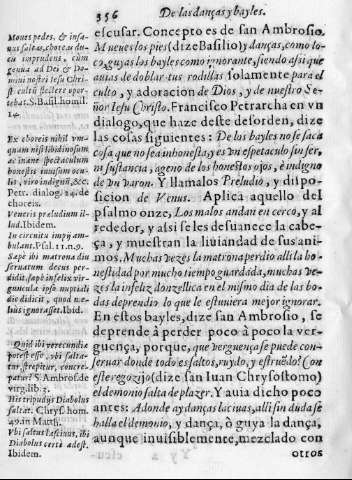 356
De las danças y bayles.
escusar. Concepto es de san Ambrosio.
Mueues los pies (dize Basilio) y danças, como lo-
co, guyas los bayles como ignorante, siendo assi que
auias de doblar tus rodillas solamente para el
culto, y adoracion de Dios, y de nuestro Se-
ñor Iesu Christo. Francisco Petrarcha en vn
dialogo, que haze deste desorden, dize
las cosas siguientes: De los bayles no se saca
cosa que no sea inhonesta, y es vn espetaculo sin fer,
ni sustancia, ageno de los honestos ojos, è indigno
de vn varon. Y llamalos Preludio, y dispo-
sicion de Venus. Aplica aquello del
psalmo onze, Los malos andan en cerco, y al
rededor, y assi se les desuanece la cabe-
ça, y muestran la liuiandad de sus ani-
mos. Muchas vezes la matrona perdio alli la ho-
nestidad por mucho tiempo guardada, muchas ve-
zes la infeliz donzellica en el mismo dia de las bo-
das deprendio lo que le estuuiera mejor ignorar.
En estos bayles, dize san Ambrosio, se
deprende à perder poco à poco la ver-
guença, porque, que verguença se puede con-
seruar donde todo es saltos, ruydo, y estruẽdo? Con
este regozijo (dize san Iuan Chrysostomo)
el demonio salta de plazer. Y auia dicho poco
antes: Adonde ay danças laciuas, alli sin duda se
halla el demonio, y dança, ò guya la dança,
aunque inuisiblemente, mezclado con
otros
Moues pedes, & insa-
nus saltas, choreas du-
cis imprudens, cum
genua ad Dei & Do-
mini nostri Iesu Chri-
sti cultũ flectere opor-
tebat. S. Basil. homil.
14.
Ex choreis nihil vm-
quam nisi libidinosum
ac inane spectaculum
honestis inuisum ocu-
lis, viro indignũ, &c.
Petr. dialog. 24. de
choreis.
Veneris præludium il-
lud. Ibidem.
In circuitu impij am-
bulant. Psal. 11. n. 9.
Sæpè ibi matrona diu
seruatum decus per-
didit, sæpè infelix vir-
guncula ipso nuptiali
die didicit, quod me-
lius ignorasset. Ibid.
Quid ibi verecundiæ
potest esse, vbi salta-
tur, strepitur, concre-
patur? S. Ambros. de
virg. lib. 3.
His tripudijs Diabolus
saltat. Chrys. hom.
49. in Matth.
Vbi saltus lasciuus, ibi
Diabolus certè adest.
Ibidem.